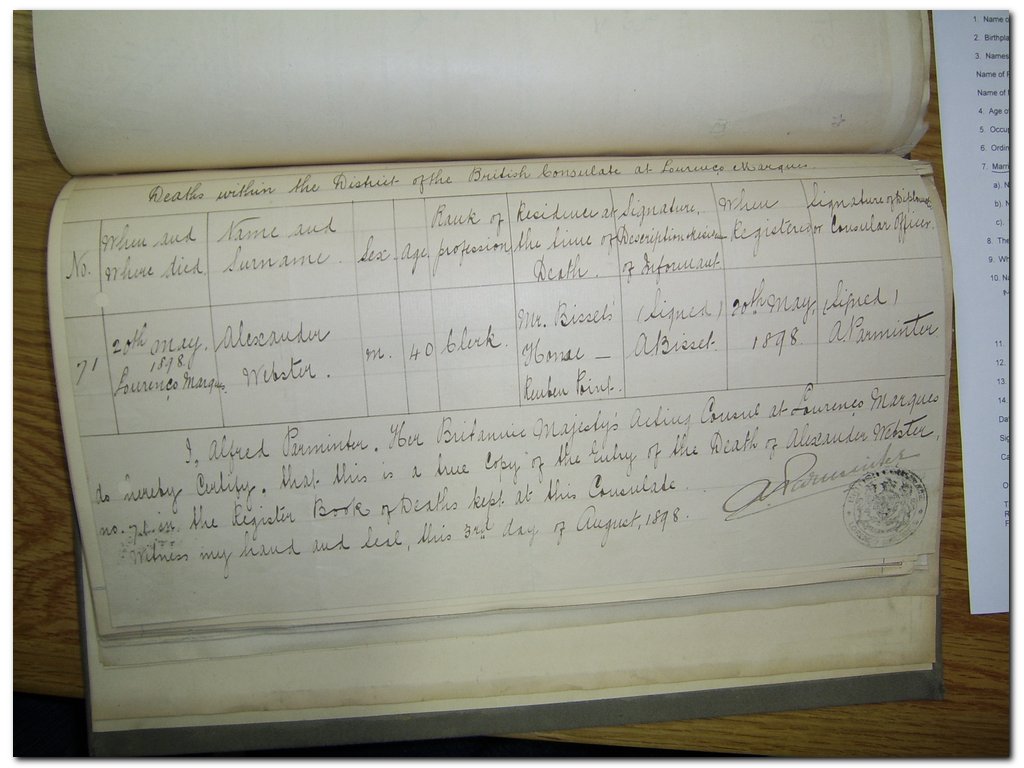 Deaths within the District of the British Consulate at Lourenço Marques.
No. When and Where died Name and Surname. Sex. Age. Rank of profession Residence at the time of Death. Signature, Description & Residence of Informant When Registered Signature of Diplomatic or Consular Officer.
71 20th May. 1898. Lourenço Marques Alexander Webster. m. 40 Clerk. Mr. Bisset's House — Reuben Point. (Signed) A Bisset. 20th May, 1898. (Signed) A Parminter
I, Alfred Parminter. Her Britannic Majesty's Acting Consul at Lourenço Marques
do hereby Certify. that this is a true Copy of the Entry of the Death of Alexander Webster,
no. 71. in the Register Book of Deaths kept at this Consulate.
Witness my hand and Seal, this 3rd day of August, 1898.
A. Parminter
1. Name o
2. Birthpla
3. Names
Name of F
Name of
4. Age o
5. Occu
6. Ordin
7. Marri
a). N
b). N
c).
8. The
9. Wh
10. Na
11.
12.
13.
14.
Da
Sig
Ca